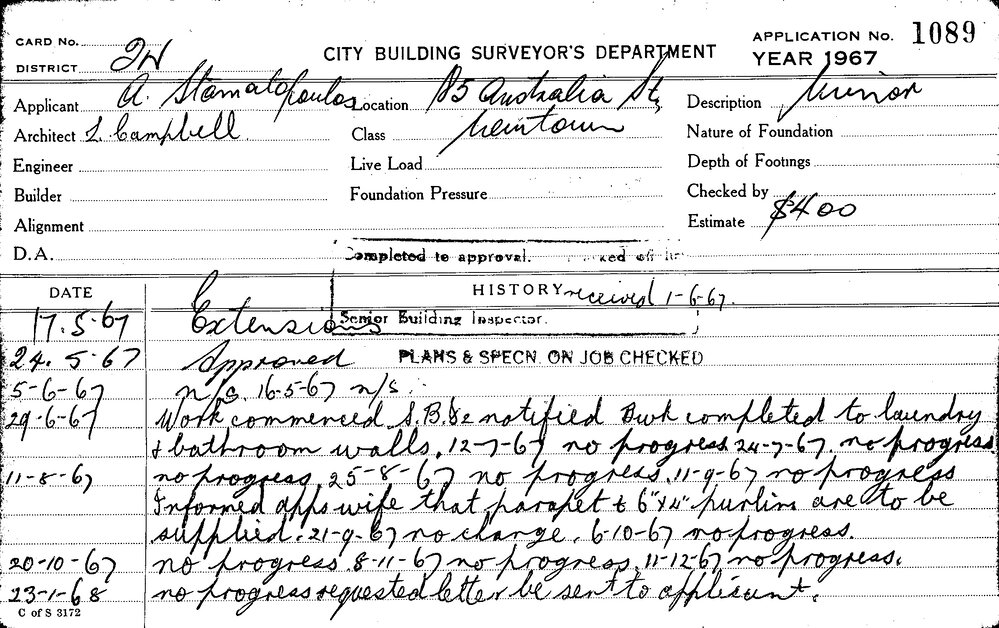 CARD No.
DISTRICT
CITY BUILDING SURVEYOR'S DEPARTMENT
APPLICATION No. 1089
YEAR 1967
Applicant A. Stamatopoulos
Location 85 Australia St,
Description Minor
Architect L. Campbell
Class Newtown
Nature of Foundation
Engineer
Live Load
Depth of Footings
Builder
Foundation Pressure
Checked by
Alignment
Estimate $400
D.A.
Completed to approval.
DATE
HISTORY received 1-6-67.
17.5.67 Extensions
Senior Building Inspector.
24.5.67 Approved PLANS & SPECN. ON JOB CHECKED
5-6-67 n/s. 16-5-67 n/s.
29-6-67 Work commenced S.B. notified Bwk completed to laundry
& bathroom walls. 12-7-67 no progress 24-7-67. no progress
11-8-67 no progress. 25-8-67 no progress. 11-9-67 no progress
Informed apps wife that parapet & 6"x4" purlins are to be
supplied. 21-9-67 no change. 6-10-67 no progress.
20-10-67 no progress. 8-11-67 no progress. 11-12-67 no progress.
23-1-68 no progress requested letter be sent to applicant.
C of S 3172